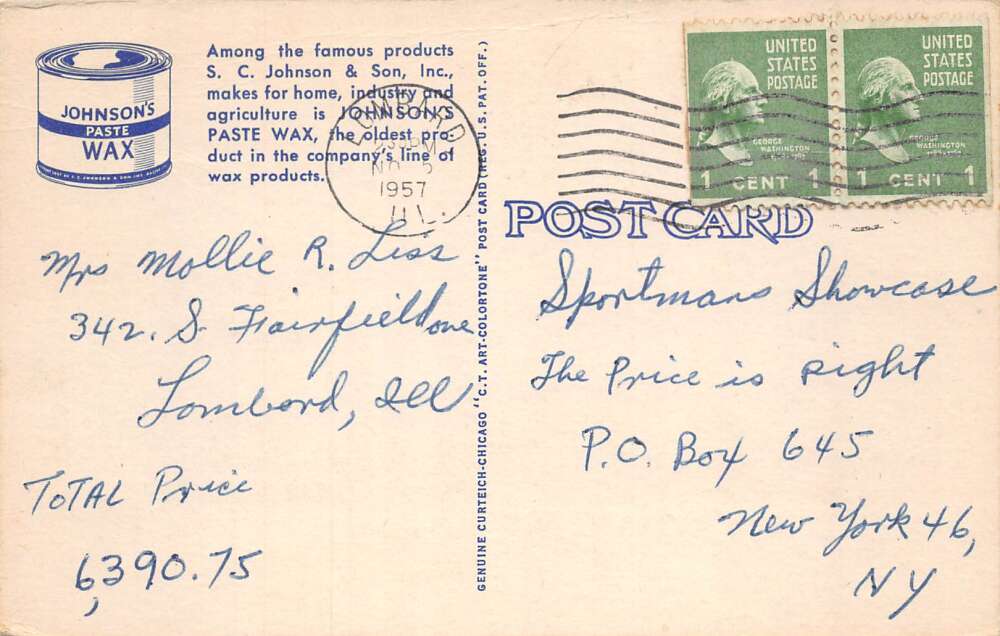 JOHNSON'S
PASTE
WAX
Among the famous products
S. C. Johnson & Son, Inc.,
makes for home, industry and
agriculture is JOHNSON'S
PASTE WAX, the oldest pro-
duct in the company's line of
wax products.
LOMBARD
PM
1957
ILL.
UNITED
STATES
POSTAGE
GEORGE
WASHINGTON
1 CENT 1
UNITED
STATES
POSTAGE
GEORGE
WASHINGTON
1 CENT 1
POST CARD
GENUINE CURTEICH-CHICAGO "C.T. ART-COLORTONE" POST CARD (REG. U.S. PAT. OFF.)
Mrs Mollie R. Liss
342. S. Fairfield ave
Lombard, Ill
TOTAL Price
6,390.75
Sportmans Showcase
The Price is Right
P.O. Box 645
New York 46,
NY